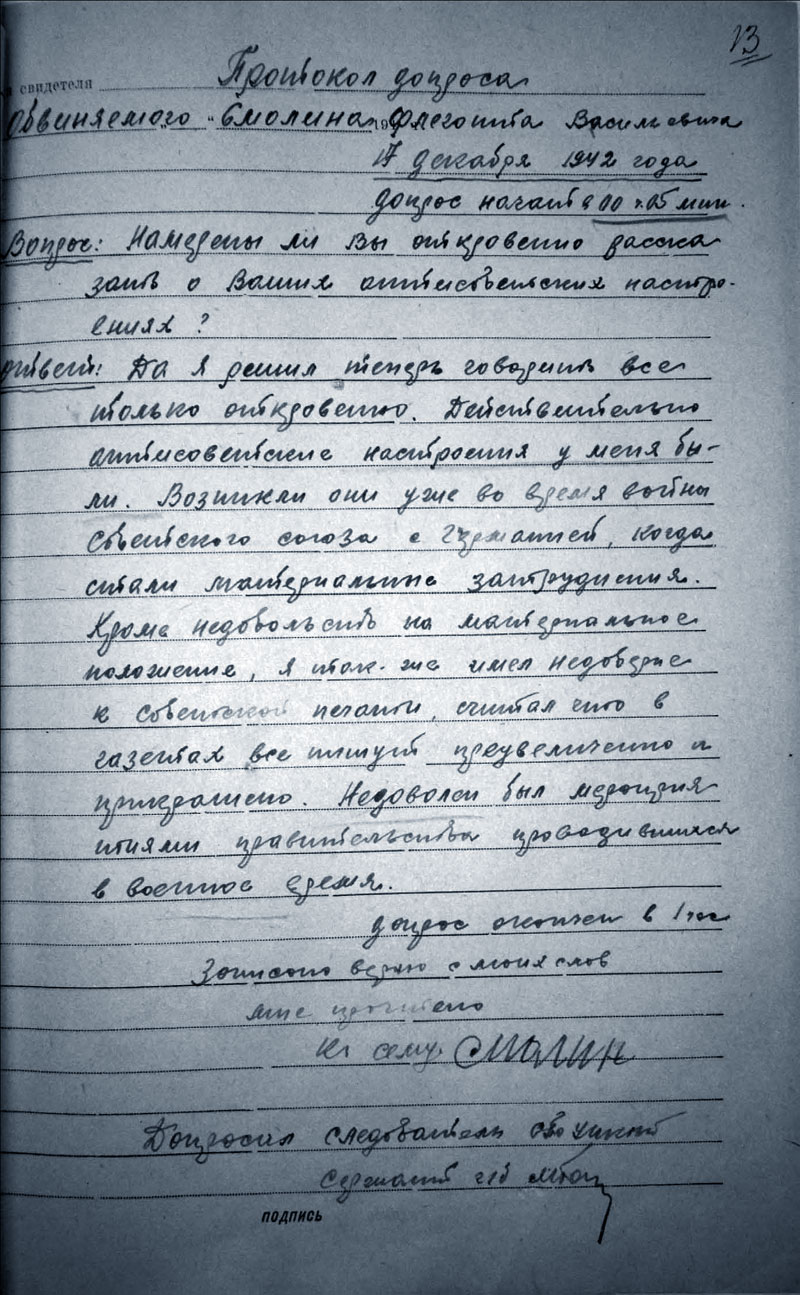 13
свидетеля Протокол допроса
Обвиняемого Смолина Флегонта Васильевича
17 декабря 1942 года
допрос начат в 00 ч. 05 мин.
Вопрос: Намерены ли Вы откровенно расска
зать о Ваших антисоветских настро-
ениях?
Ответ: Да я решил теперь говорить все
только откровенно. Действительно
антисоветские настроения у меня бы-
ли. Возникли они уже во время войны
Советского союза с Германией, когда
стали материальные затруднения.
Кроме недовольств на материальное
положение, я так-же имел недоверие
к советской печати, считал что в
газетах все пишут преувеличенно и
прикрашено. Недоволен был мероприя
тиями правительства проводившихся
в военное время.
допрос окончен в 1 час
Записано верно с моих слов
мне прочитано
К сему Смолин
Допросил следователь
сержант г/б
подпись